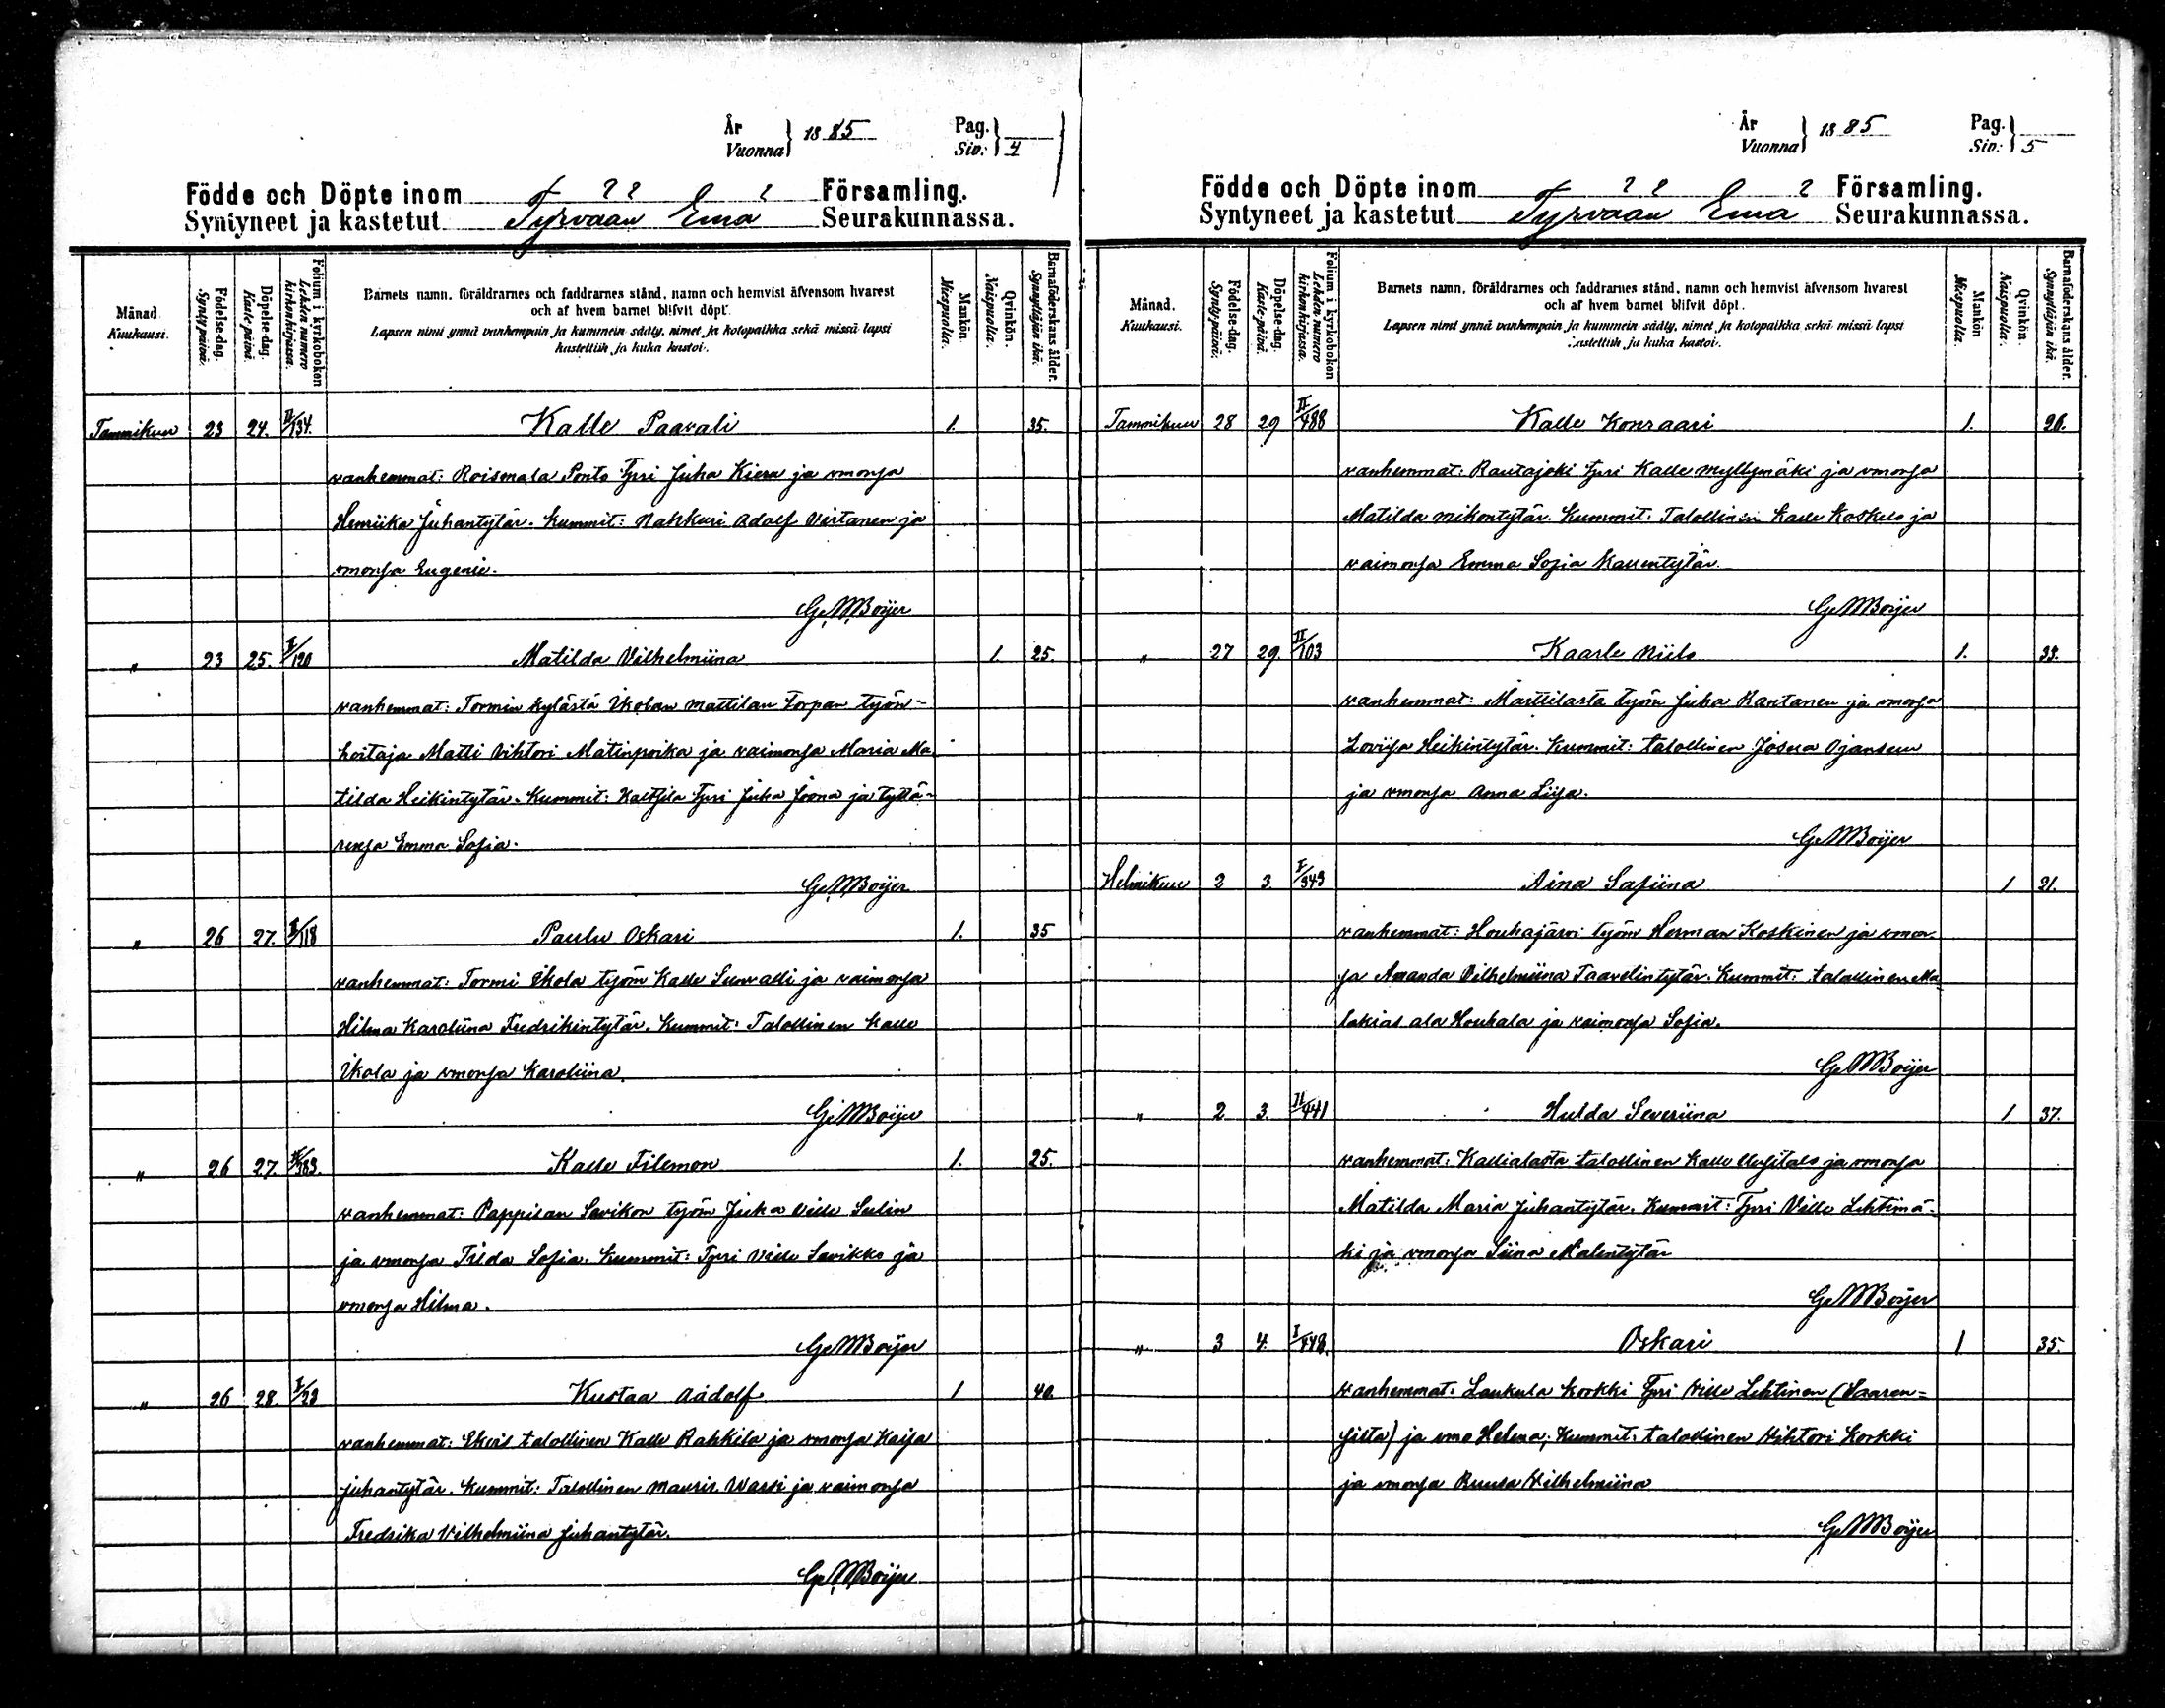 År
Vuonna 1885 Pag.
Siv: 4
Födde och Döpte inom Församling.
Syntyneet ja kastetut Tyrvään Emä Seurakunnassa.
Månad.
Kuukausi.
Födelse-dag.
Synty-päivä.
Döpelse-dag.
Kaste-päivä.
Folium i kyrkoboken
Lehden numero
kirkonkirjassa.
Barnets namn, föräldrarnes och faddrarnes stånd, namn och hemvist äfvensom hvarest
och af hvem barnet blifvit döpt.
Lapsen nimi ynnä vanhempain ja kummein sääty, nimet ja kotopaikka sekä missä lapsi
kastettiin ja kuka kastoi.
Mankön.
Miespuolia.
Qvinkön.
Naispuolia.
Barnaföderskans ålder.
Synnyttäjän ikä.
Tammikuu 23 24. II/134. Kalle Paavali 1. 35.
vanhemmat: Roismala Ponto Tpri Juha Kiera ja vmonsa
Henriika Juhantytär. Kummit: Nahkuri Adolf Virtanen ja
vmonsa Eugenie.
G. M. Boijer
" 23 25. I/120 Matilda Vilhelmiina 1. 25.
vanhemmat: Tormin kylästä Ikolan Mattilan Torpan työn-
hoitaja Matti Vihtori Matinpoika ja vaimonsa Maria Ma-
tilda Heikintytär. Kummit: Tpri Juha Joona ja tyttä-
rensä Emma Sofia.
G. M. Boijer
" 26 27. I/118 Paulu Oskari 1. 35
vanhemmat: Tormi Ikola työm Kalle Sunvalli ja vaimonsa
Hilma Karoliina Fredrikintytär. Kummit: Talollinen Kalle
Ikola ja vmonsa Karoliina.
G. M. Boijer
" 26 27. 383. Kalle Filemon 1. 25.
vanhemmat: Pappilan Savikon työm Juha Ville Sulin
ja vmonsa Tilda Sofia. Kummit: Tpri Ville Savikko ja
vmonsa Hilma.
G. M. Boijer
" 26 28. I/23 Kustaa Aadolf 1 40.
vanhemmat: talollinen Kalle Rahkila ja vmonsa Kaisa
Juhantytär. Kummit: Talollinen Mauris ja vaimonsa
Fredrika Vilhelmiina Juhantytär.
G. M. Boijer
År
Vuonna 1885 Pag.
Siv: 5
Födde och Döpte inom Församling.
Syntyneet ja kastetut Tyrvään Emä Seurakunnassa.
Månad.
Kuukausi.
Födelse-dag.
Synty-päivä.
Döpelse-dag.
Kaste-päivä.
Folium i kyrkoboken
Lehden numero
kirkonkirjassa.
Barnets namn, föräldrarnes och faddrarnes stånd, namn och hemvist äfvensom hvarest
och af hvem barnet blifvit döpt.
Lapsen nimi ynnä vanhempain ja kummein sääty, nimet ja kotopaikka sekä missä lapsi
kastettiin ja kuka kastoi.
Mankön
Miespuolia.
Qvinkön.
Naispuolia.
Barnaföderskans ålder.
Synnyttäjän ikä.
Tammikuu 28 29 II/488 Kalle Konraari 1.
vanhemmat: Rautajoki Tpri Kalle Myllymäki ja vmonsa
Matilda Mikontytär. Kummit: Talollinen Kalle Koskelo ja
vaimonsa Emma Sofia Kallentytär.
G. M. Boijer
" 27 29. II/103 Kaarle Niilo 1.
vanhemmat: Marttilasta työm Juha Rantanen ja vmonsa
Loviisa Heikintytär. Kummit: talollinen Josua Ojansuu
ja vmonsa Anna Liisa.
G. M. Boijer
Helmikuu 2 3. I/343 Aina Safiina 1 21.
vanhemmat: Houhajärvi työm Herman Koskinen ja vmon-
sa Amanda Vilhelmiina Taavelintytär. Kummit: talollinen Ma-
lakias ala Houhala ja vaimonsa Sofia.
G. M. Boijer
" 2 3. II/441 Hulda Severiina 1 37.
vanhemmat: Kallialasta talollinen Kalle Uusitalo ja vmonsa
Matilda Maria Juhantytär. Kummit: Tpri Ville Lehtimä-
ki ja vmonsa Siina Malentytär
G. M. Boijer
" 3 4. I/448. Oskari 1 35.
vanhemmat: Laukula Korkki Tpri Ville Lehtinen (Saaren-
) ja vmo Helena; Kummit: talollinen Vihtori Korkki
ja vmonsa Ruusa Vilhelmiina
G. M. Boijer